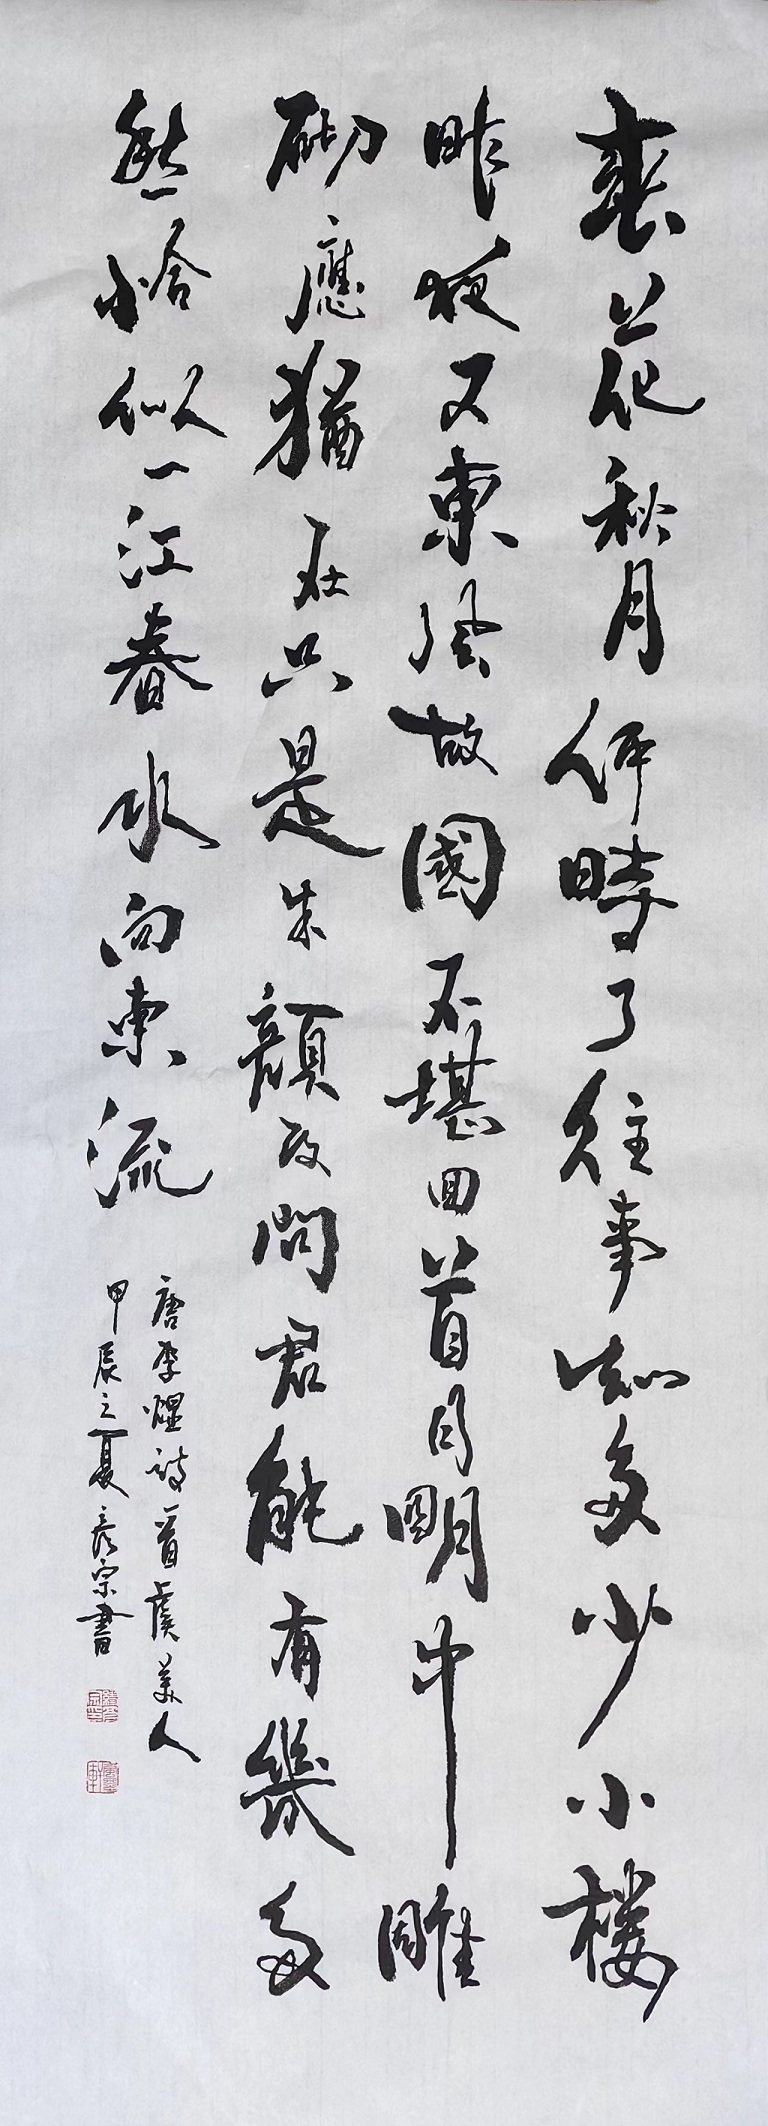 春花秋月何時了往事知多少小樓
昨夜又東風故國不堪回首月明中雕
砌應猶在只是朱顏改問君能有幾多
愁恰似一江春水向東流
唐李煜詩一首虞美人
甲辰之夏彥宗書